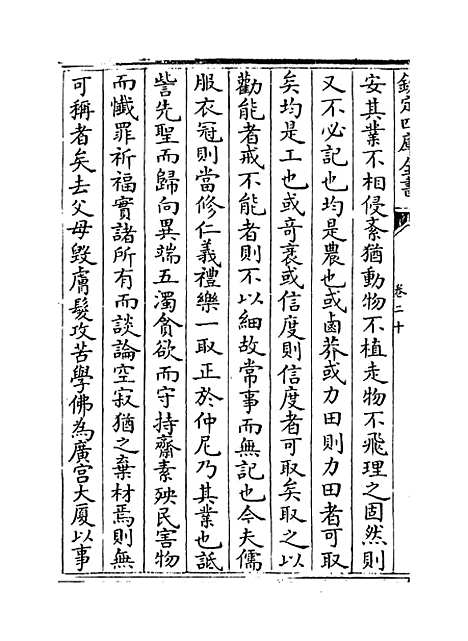 欽定四庫全書
卷二十
安其業不相侵紊猶動物不植走物不飛理之固然則
又不必記也均是農也或鹵莽或力田則力田者可取
矣均是工也或竒衺或信度則信度者可取矣取之以
勸能者戒不能者則不以細故常事而無記也今夫儒
服衣冠則當修仁義禮樂一取正於仲尼乃其業也詆
訾先聖而歸向異端五濁貪欲而守持齋素殃民害物
而懺罪祈福實諸所有而談論空寂猶之棄材焉則無
可稱者矣去父母毀膚髮攻苦學佛為廣宫大厦以事